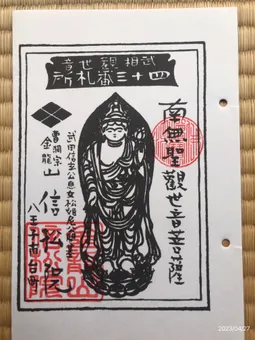 武相觀世音
四十三番札所
南無聖觀世音菩薩
武田信玄公息女松姫
曹洞宗
金龍山信松院
八王子市台町
2023/04/27